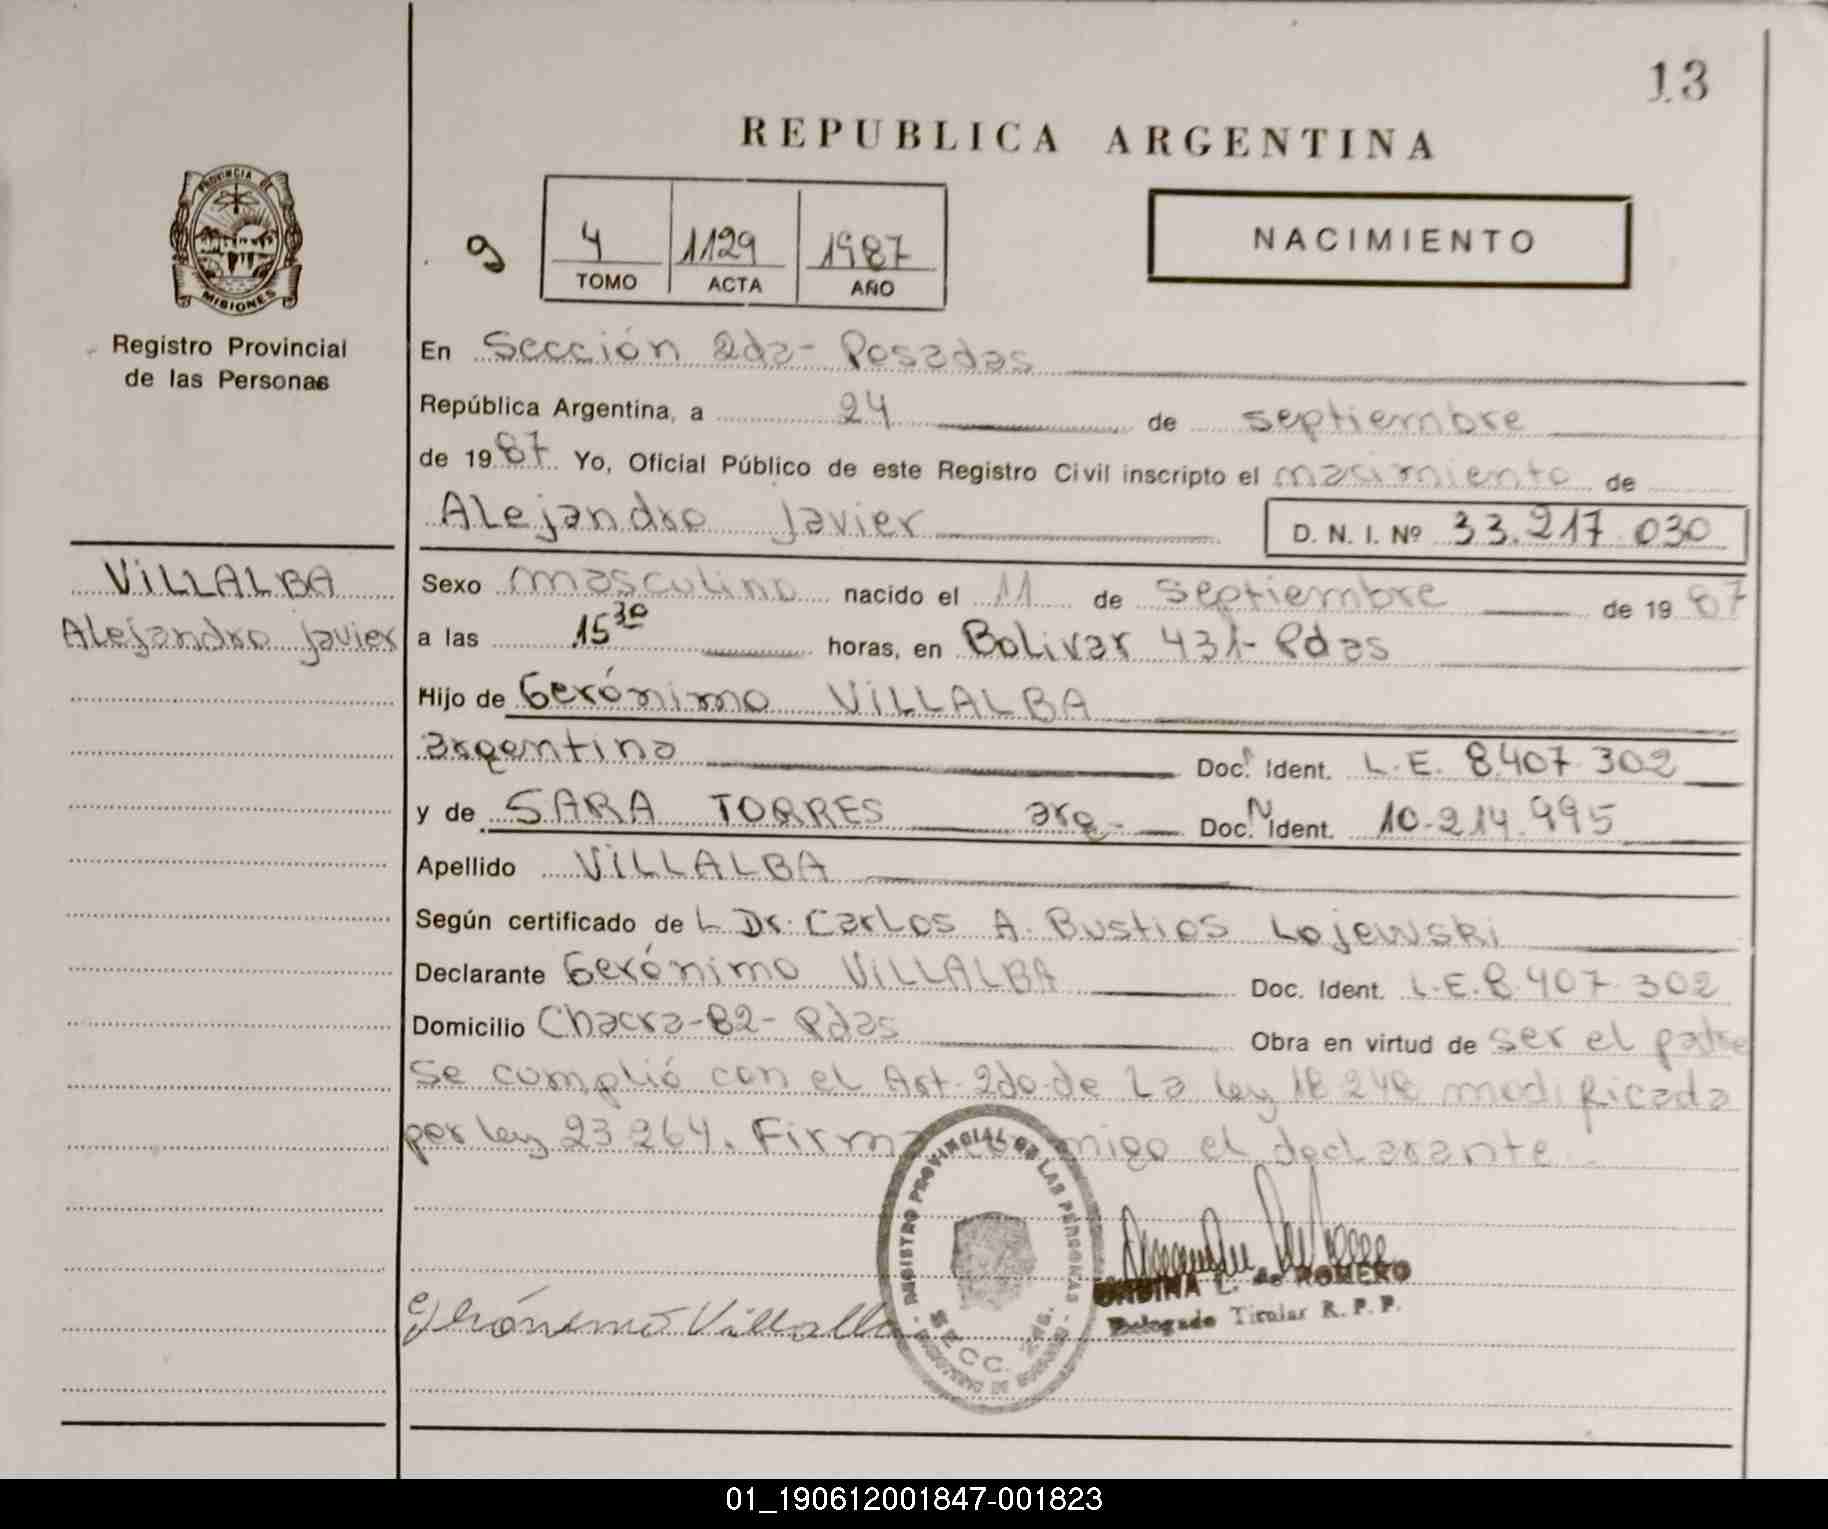 13
REPUBLICA ARGENTINA
PROVINCIA DE
MISIONES
Registro Provincial
de las Personas
9
4 1129 1987
TOMO ACTA AÑO
NACIMIENTO
En Sección 2da- Posadas
República Argentina, a 24 de septiembre
de 1987 Yo, Oficial Público de este Registro Civil inscripto el nacimiento de
Alejandro Javier D. N. I. Nº 33.217.030
VILLALBA
Alejandro Javier
Sexo masculino nacido el 11 de septiembre de 1987
a las 15 30 horas, en Bolivar 431- Pdas
Hijo de Gerónimo VILLALBA
argentino Doc. Ident. L.E. 8.407.302
y de SARA TORRES arg. Doc. N Ident. 10.214.995
Apellido VILLALBA
Según certificado de L Dr. Carlos A. Bustios Lojewski
Declarante Gerónimo VILLALBA Doc. Ident. L.E.8.407.302
Domicilio Chacra-82- Pdas Obra en virtud de ser el padre
Se cumplió con el Art. 2do de La ley 18.248 modificada
por ley 23.264. Firma conmigo el declarante.
REGISTRO PROVINCIAL DE LAS PERSONAS
SECC. 2da.
Gerónimo Villalba
ONDINA L. de ROMERO
Delegado Titular R. P. P.
01_190612001847-001823